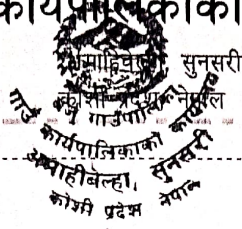 कार्यपालिकाको
सुनसरी
कोशी प्रदेश नेपाल
गाउँ कार्यपालिकाको कार्यालय
अमाहीबेल्हा, सुनसरी
कोशी प्रदेश नेपाल